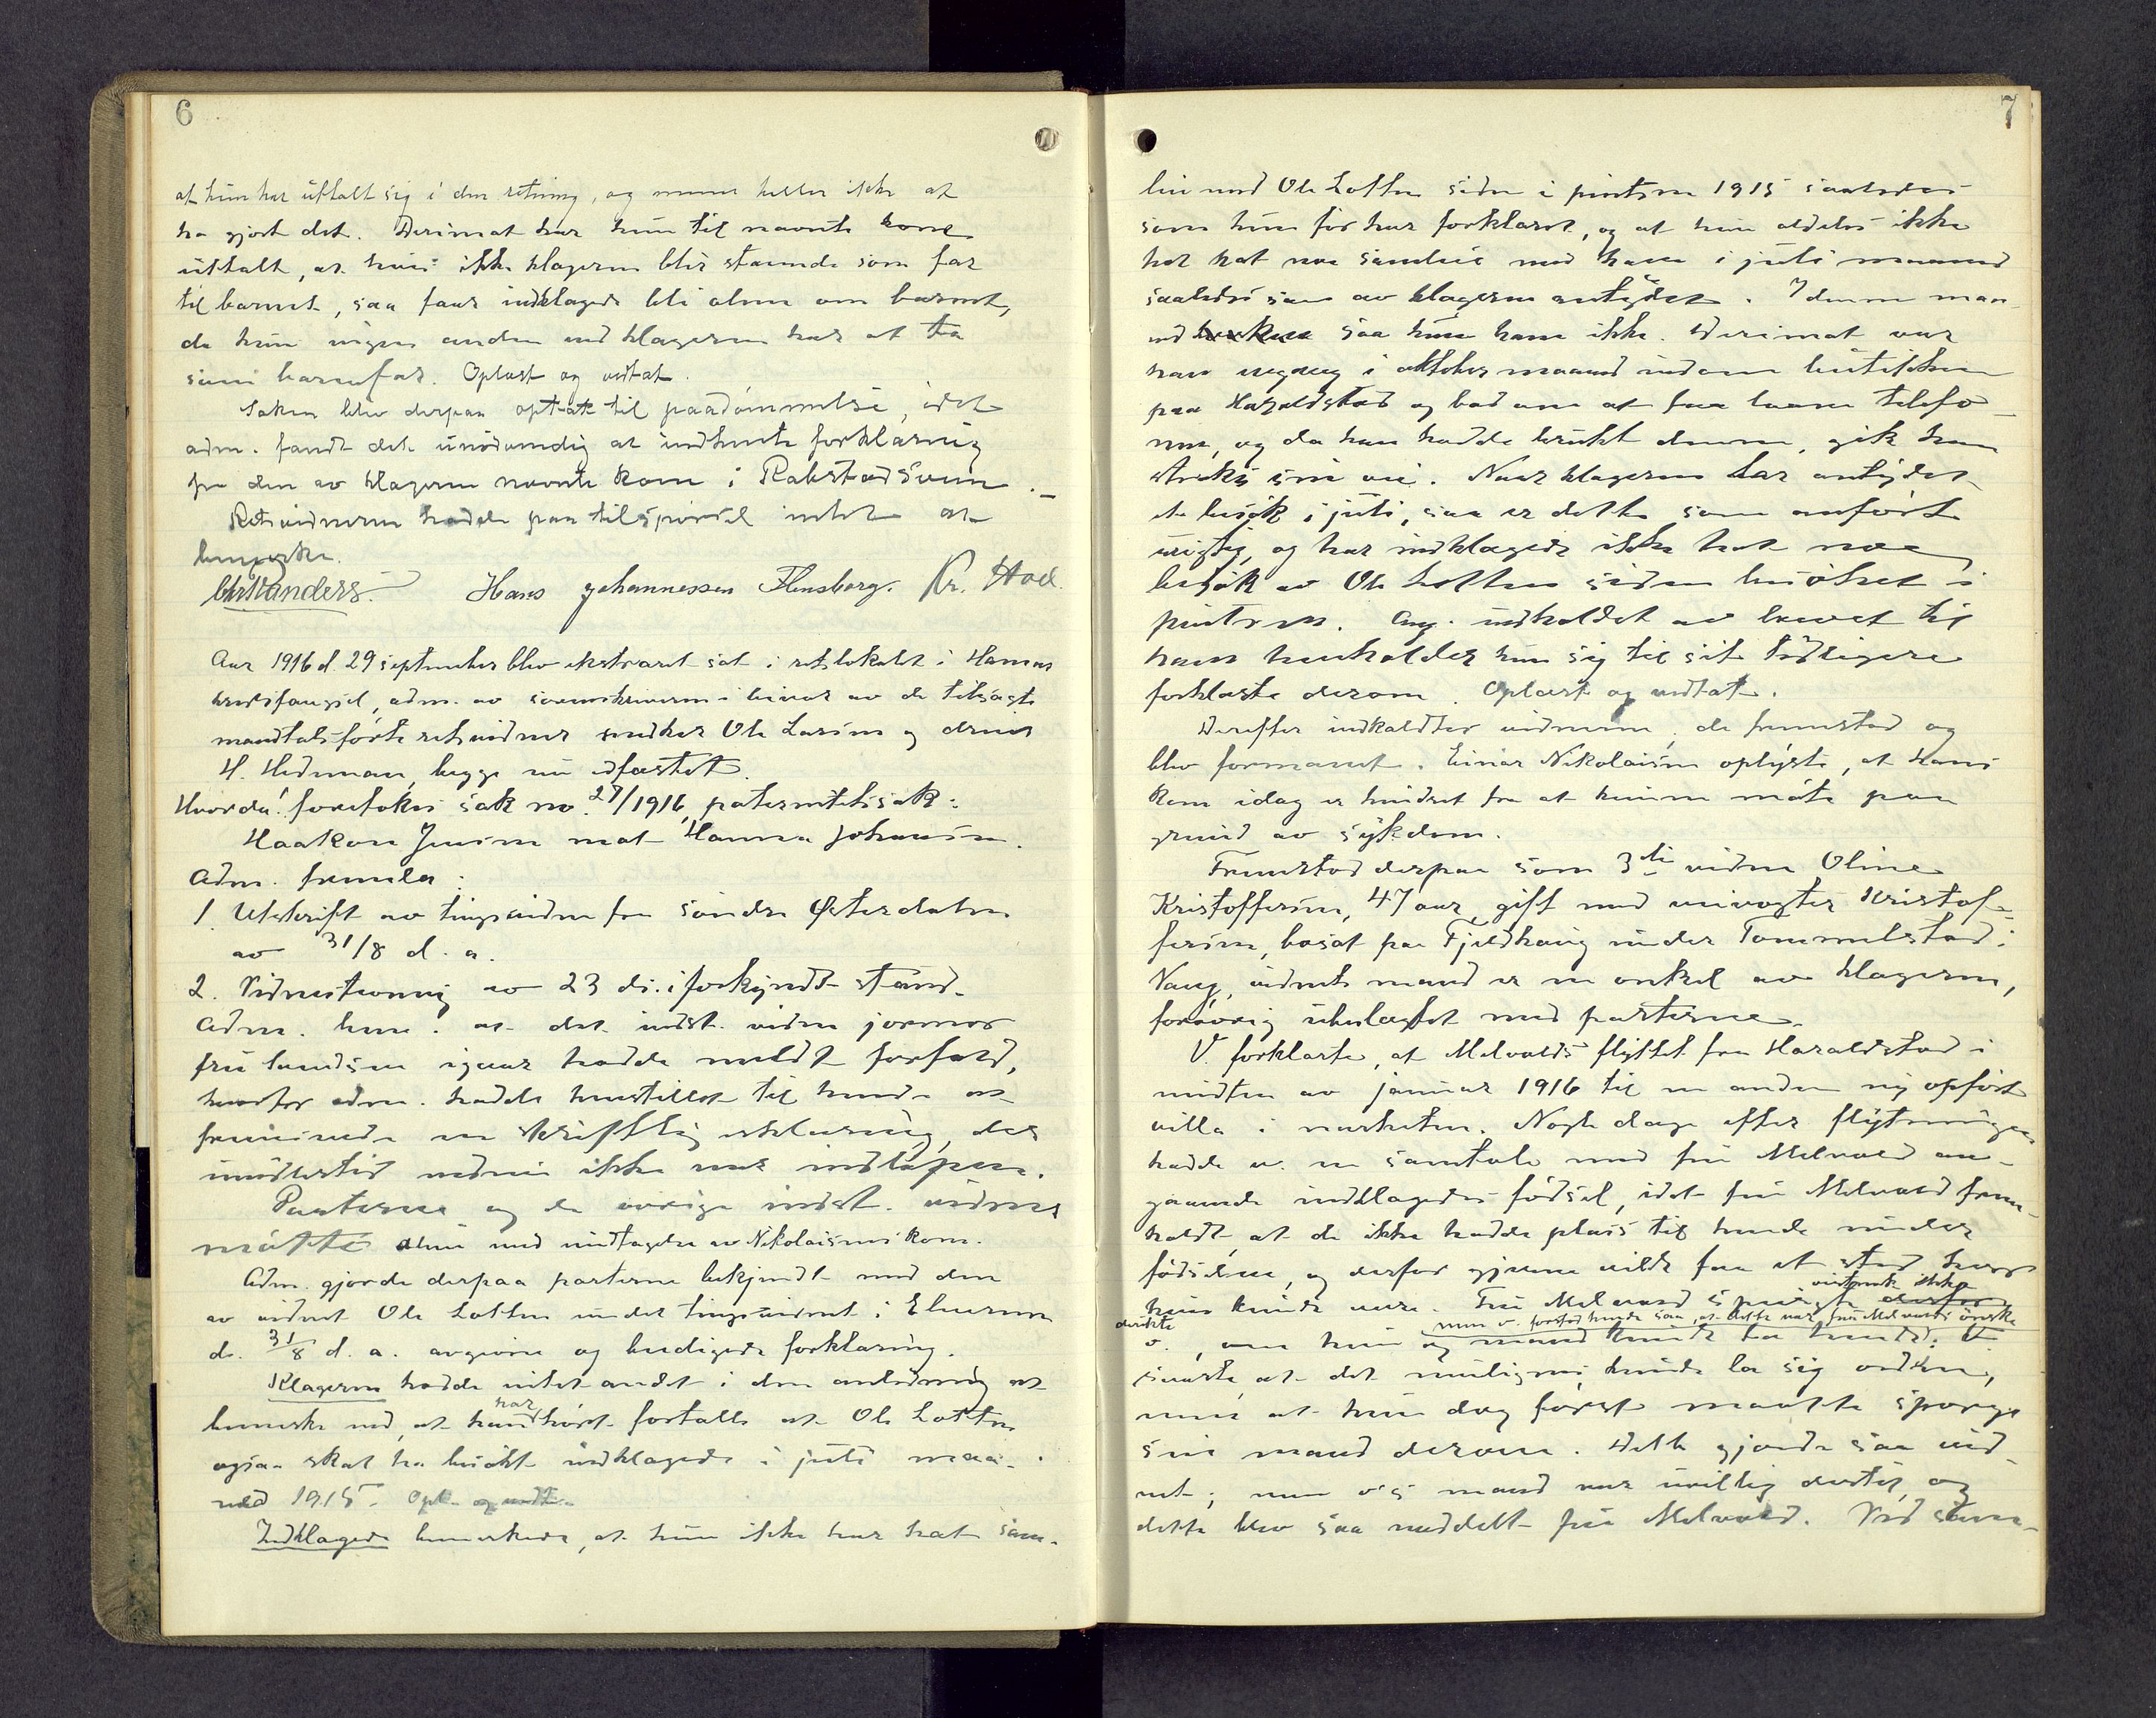 6
at hun har uttalt sig i den retning, og mener heller ikke at
ha gjort det. Derimot har hun til nævnte kone
uttalt, at hvis ikke klageren blir staaende som far
til barnet, saa faar indklagede bli alene om barnet,
da hun ingen anden end klageren har at ta
som barnefar. Oplæst og vedtat.
Saken blev derpaa optat til paadømmelse, idet
adm. fandt det unødvendig at indhente forklaring
fra den av klageren nævnte kone i Rabstadsveen.
Retsvidnerne hadde paa tilspørsel intet at
bemerke.
Hans Johannessen Flensborg. Kr. Hoel
Aar 1916 d. 29 september blev ekstraret sat i retslokalet i Hamar
kredsfængsel, adm. av sorenskriveren i nærvær av de tilsagte
mandtalsførte retsvidner snedker Ole Larsen og
H. Hedemann, begge nu edfæstet.
Hvorda: foretokes sak no. 27/1916, paternitetssak:
Haakon Jensen mot Hanna Johansen.
Adm. fremla:
1. Utskrift av tingsvidne fra søndre Østerdalen
av 31/8 d. a.
2. Vidnestevning av 23 ds. i forkyndt stand.
Adm. bem. at det indst. vidne jormor
fru Knudsen igaar hadde meldt forfald,
hvorfor adm. hadde henstillet til hende at
fremsende en skriftlig erklæring, der
imidlertid endnu ikke var indløpen.
Parterne og de øvrige indst. vidner
møtte alene med undtagelse av Nikolaisens kone.
Adm. gjorde derpaa parterne bekjendt med den
av vidnet Ole Lotten under tingsvidnet i Elverum
d. 31/8 d. a. avgivne og beedigede forklaring.
Klageren hadde intet andet i den anledning at
bemerke end, at han har hørt fortalt at Ole Lotten
ogsaa skal ha besøkt indklagede i juli maa-
ned 1915. Opl. og vedt.
Indklagede bemerkede, at hun ikke har hat sam-
7
leie med Ole Lotten siden i pintsen 1915 saaledes
som hun før har forklaret, og at hun aldeles ikke
har hat noe samleie med ham i juli maaned
saaledes som av klageren antydet. I denne maa-
ned saa hun ham ikke. Derimot var
han engang i oktober maaned indom
paa Haraldstad og bad om at faa laane telefo-
nen, og da han hadde brukt denne, gik han
straks sin vei. Naar klageren har antydet
et besøk i juli, saa er dette som anført
urigtig, og har indklagede ikke hat noe
besøk av Ole Lotten siden besøket i
pintsen. Ang. indholdet av brevet til
ham henholder hun sig til sit tidligere
forklarte derom. Oplæst og vedtat.
Derefter indkaldtes vidnerne, de fremstod og
blev formanet. Einar Nikolaisen oplyste, at hans
kone idag er hindret fra at kunne møte paa
grund av sykdom.
Fremstod derpaa som 3die vidne Oline
Kristoffersen, 47 aar, gift med veivogter Kristof-
fersen, bosat paa Fjeldhaug under Tommelstad i
Vang, vidnets mand er en onkel av klageren,
forøvrig ubeslegtet med parterne.
V. forklarte, at Melvolds flyttet fra Haraldstad i
midten av januar 1916 til en anden ny opført
villa i nærheten. Nogle dage efter flytningen
hadde v. en samtale med fru Melvold an-
gaaende indklagedes fødsel, idet fru Melvold frem-
holdt, at de ikke hadde plass til hende under
fødselen, og derfor gjerne vilde faa et sted hvor
hun kunde være. Fru Melvold spurgte derfor
vistnok ikke
direkte
men v. forstod hende saa, at dette var fru Melvolds ønske
v., om hun og mand kunde ha hende. V.
svarte, at det muligens kunde la sig ordne,
men at hun dog først maatte spørge
sin mand derom. Dette gjorde saa vid-
net; men v's mand var uvillig dertil, og
dette blev saa meddelt fru Melvold. Ved sam-